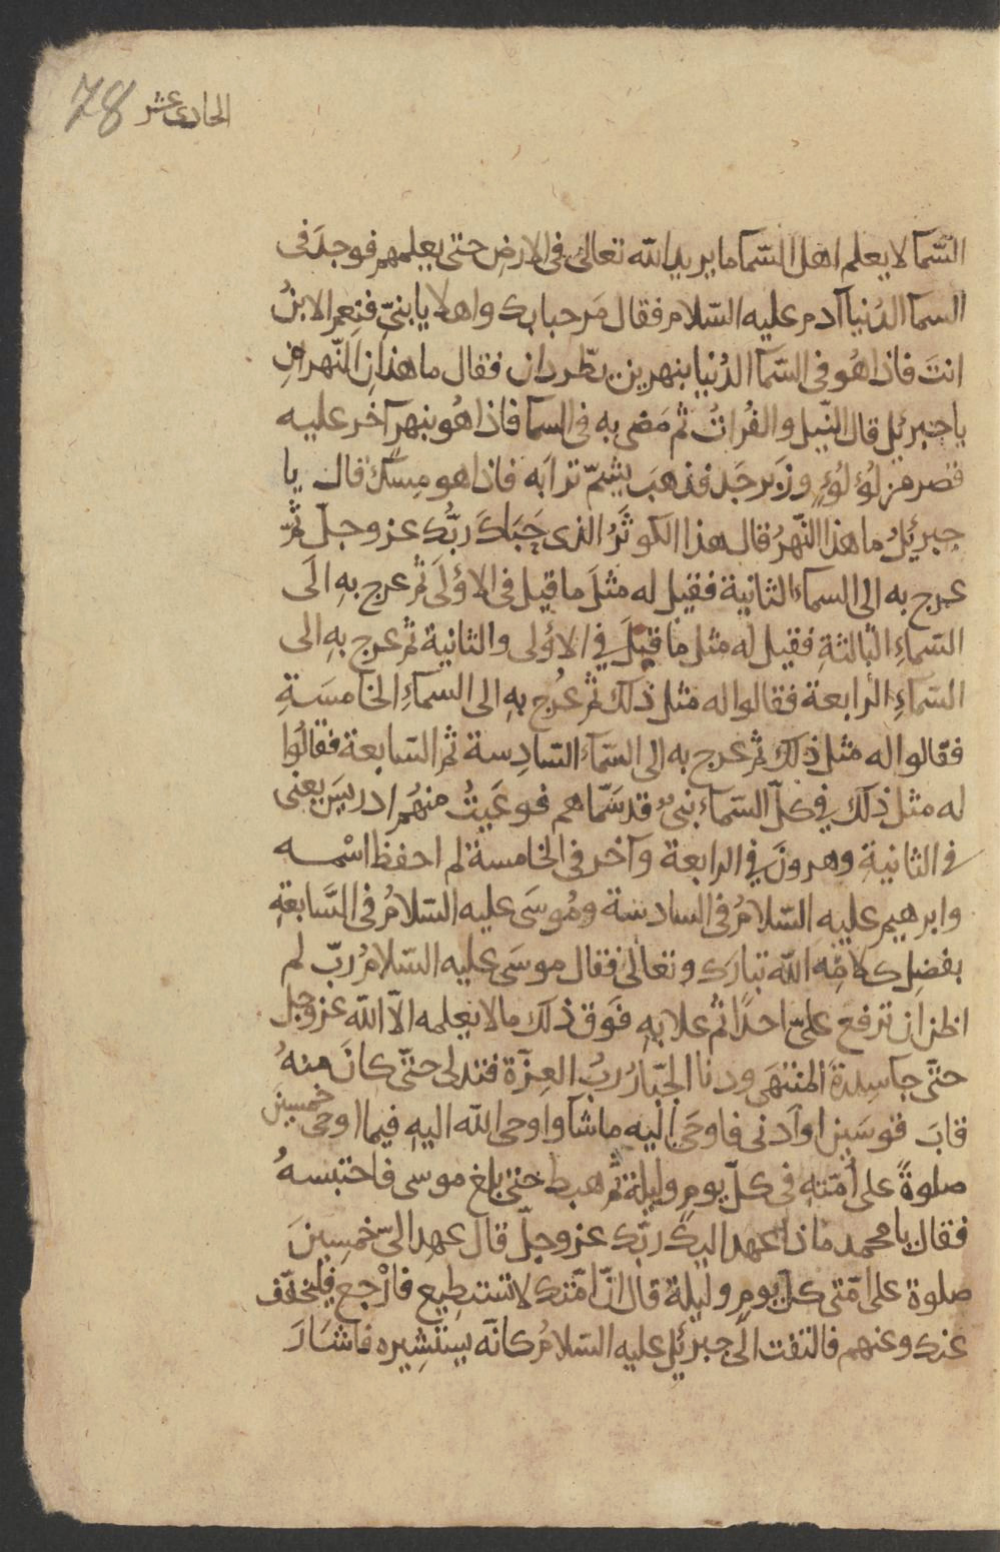 78 الحادى عشر
السّمآ لا يعلم اهل السّمآ ما يريد الله تعالى فى الارض حتى يعلمهم فوجد فى
السمآ الدُنيا آدم عليه السّلام فقال مَرحبا بك واهلا يا بنىّ فنِعم الابنُ
انتَ فاذا هُو فى السّمآ الدُنيا بنهرين يطّردان فقال ما هذانِ النّهرانِ
يا جبريُل قال النّيل والفُراتُ ثم مَضى به فى السمآ فاذا هُو بنهرٍ آخر عليه
قصر من لُؤلُؤٍ وزَبرجَد فذهبَ يشمّ ترابَه فاذا هو مِسكٌ قال يا
جبرئيلُ ما هذا النّهرُ قال هذا الكوثَرُ الذى خَبَاكَ ربُّك عز وجلّ ثمّ
عرج به الى السمآء الثانية فقيل له مثلَ ما قيل فى الاؤلَى ثم عرج بهِ الَى
السّمآءِ الثالثةِ فقيل له مثل ما قيلَ فى الاؤلى والثانية ثم عرج بهِ الى
السّمآءِ الرابعة فقالوا له مثل ذلك ثم عُرج بهِ الى السمآءِ الخامسَةِ
فقالوا له مثل ذلك ثم عرج به الى السّمآء السّادِسة ثم السّابعة فقالُوا
له مثل ذلك فى كلّ السّمآء نبىٌ قد سَمّاهم فوعَيتُ منهُم ادريسَ يعنى
فى الثانيةِ وهرونَ فى الرابعة وآخر فى الخامسة لم احفظ اسْمه
وابرهيم عليه السّلامُ فى السادسة ومُوسَى عليه السّلامُ فى السَّابعةِ
بفضلِ كلامِه الله تبارك وتعالى فقال موسَى عليه السّلامُ ربّ لم
اظن ان ترفع علىّ احدًا ثم علا بهِ فَوق ذلك ما لا يعلمه الاّ الله عز وجل
حتَّى جا سِدرةَ المنتهَى ودنا الجبّارُ ربُ العِزّة فتدلى حتّى كانَ منهُ
قابَ قوسَين او ادنى فاوحَى اليه ما شآ واوحى الله اليهِ فيما اوحى خمسينَ
صلوةً على امّتهِ فى كلّ يومٍ وليلة ثم هبط حتى بلغ موسى فاحتبسهُ
فقال يا محمد ماذا عهد اليك ربّك عز وجلّ قال عهد الىّ خمسِينَ
صلوة على امّتى كل يومٍ وليلة قال انّ امّتك لا تستطيع فارْجع فليخفّف
عنك وعنهم فالتفت الى جبرئيل عليه السّلامُ كانّه يستشِيره فاشَارَ